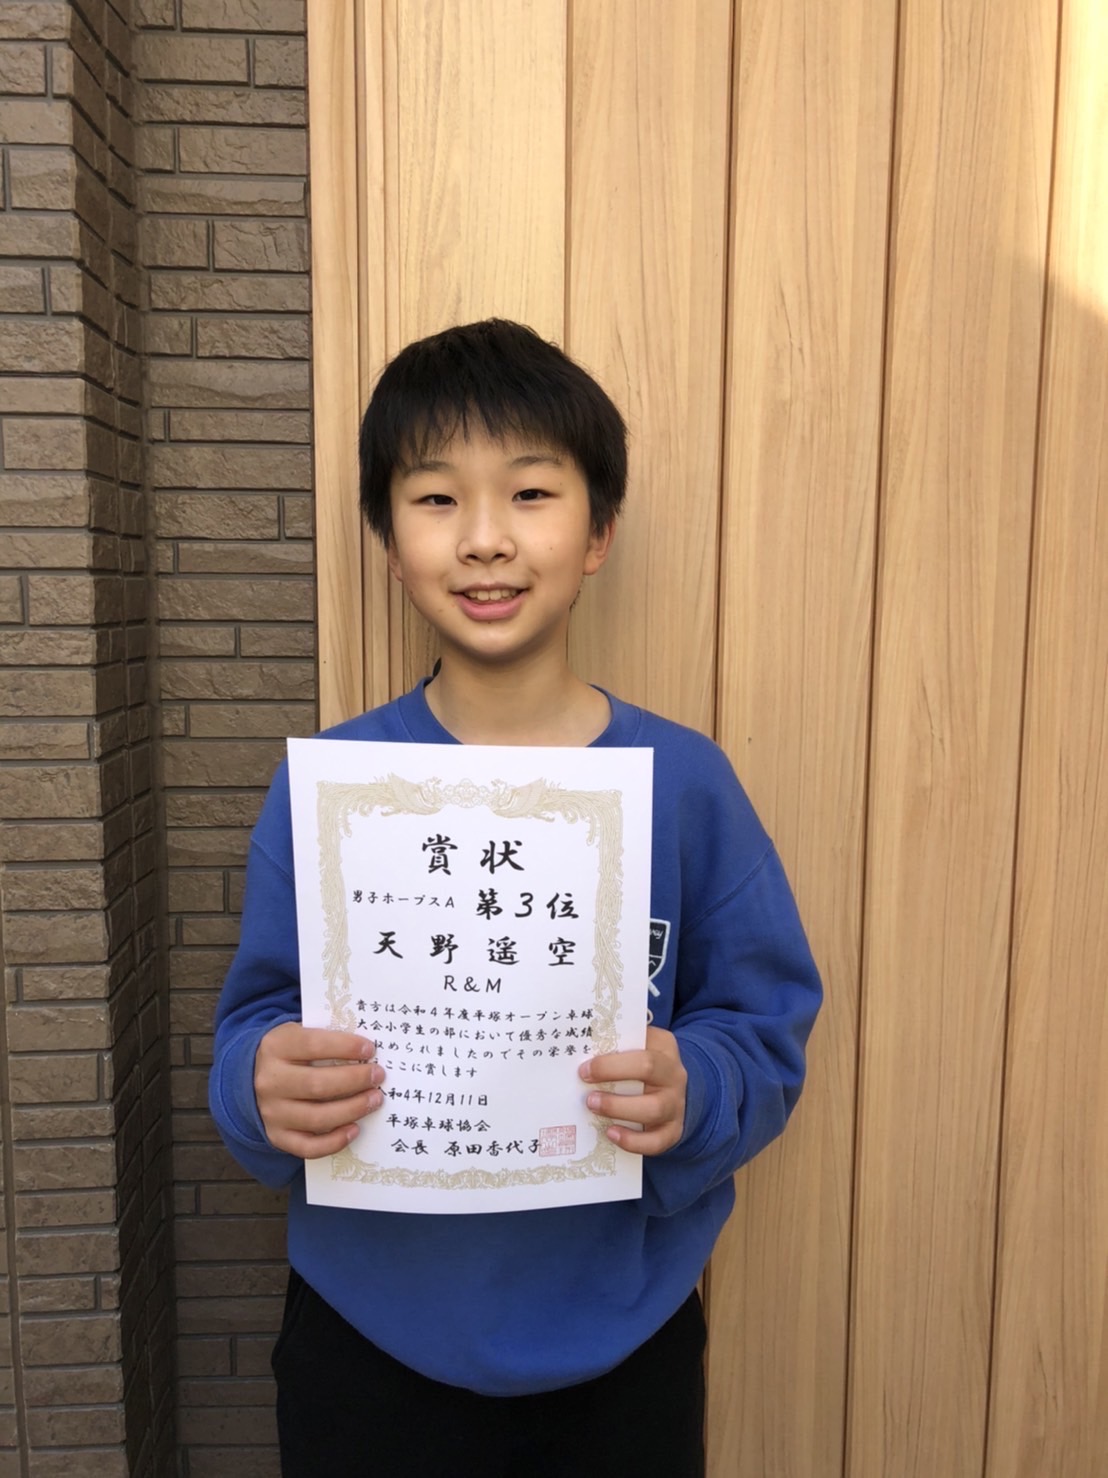 賞状
男子ホープスA 第3位
天野遥空
R&M
貴方は令和4年度平塚オープン卓球
大会小学生の部において優秀な成績
収められましたのでその栄誉を
ここに賞します
令和4年12月11日
平塚卓球協会
会長 原田香代子